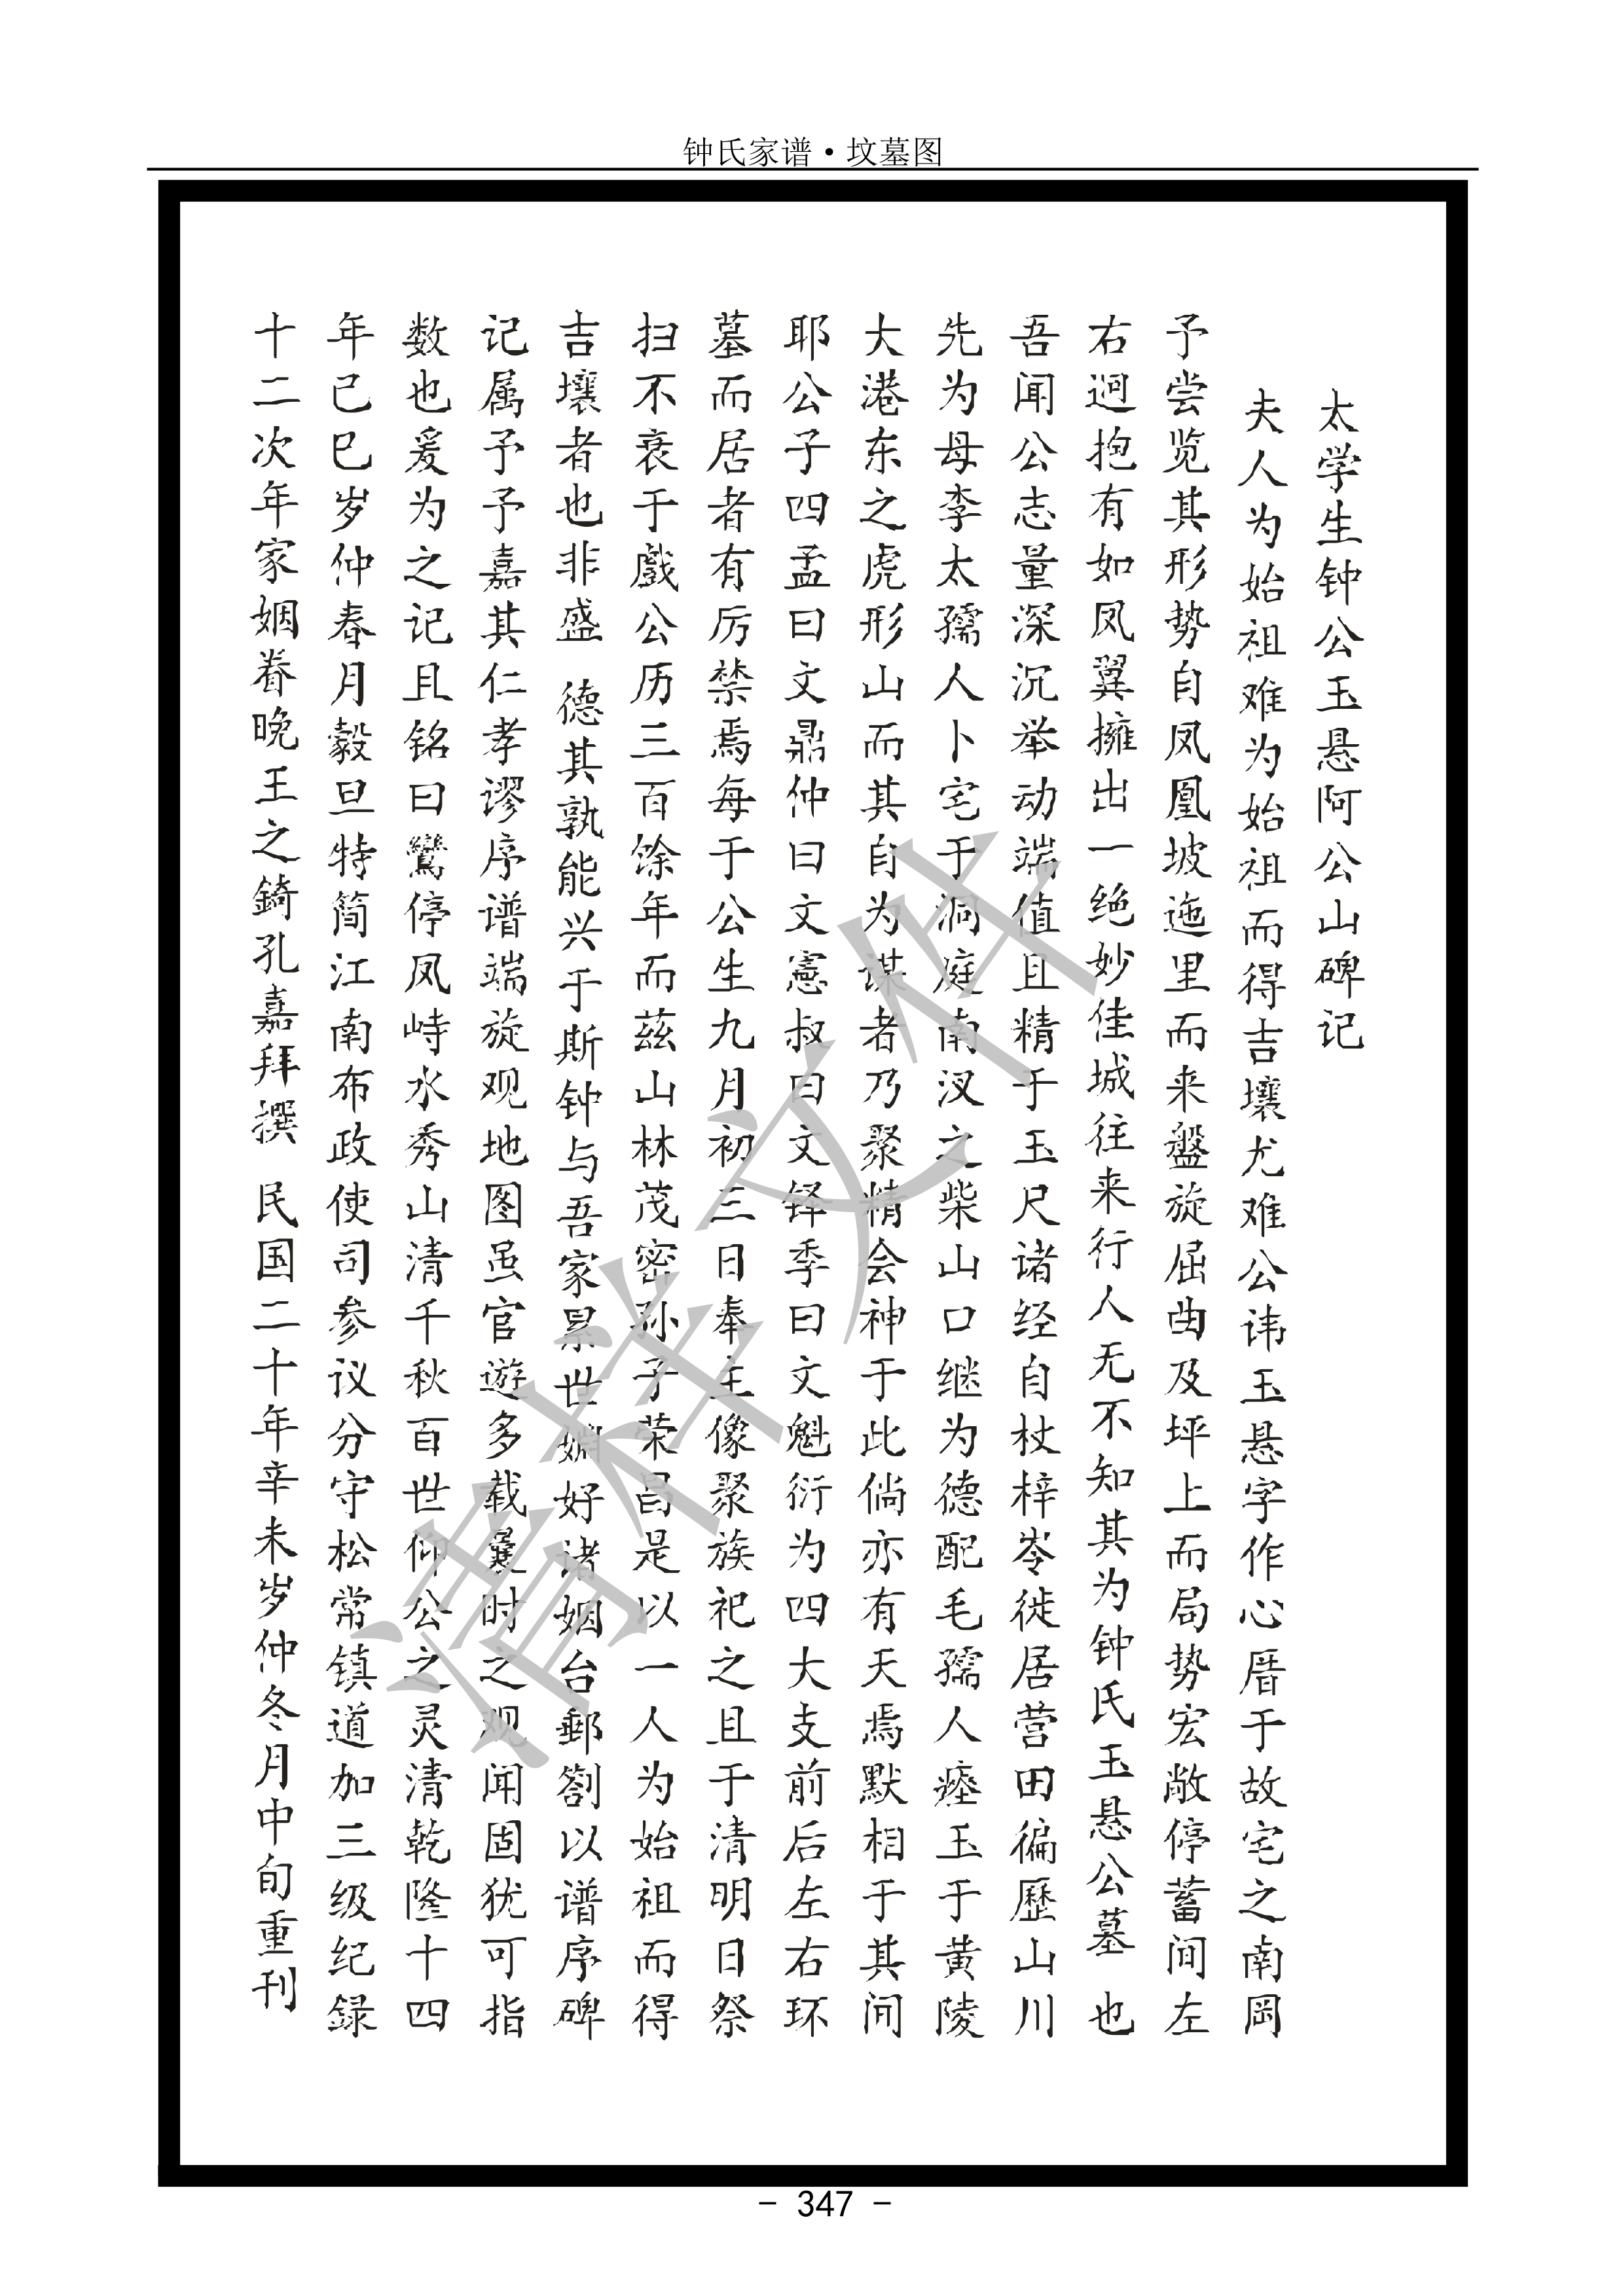 钟氏家谱·坟墓图
太学生钟公玉悬阿公山碑记
夫人为始祖难为始祖而得吉壤尤难公讳玉悬字作心厝于故宅之南岡
予尝览其形势自凤凰坡迤里而来盤旋屈曲及坪上而局势宏敞停蓄间左
右迴抱有如凤翼擁出一绝妙佳城往来行人无不知其为钟氏玉悬公墓 也
吾闻公志量深沉举动端值且精于玉尺诸经自杖梓岺徙居营田徧歷山川
先为母李太孺人卜宅于洞庭南汊之柴山口继为德配毛孺人瘗玉于黄陵
大港东之虎形山而其自为谋者乃聚精会神于此倘亦有天焉默相于其间
耶公子四孟曰文鼎仲曰文憲叔曰文铎季曰文魁衍为四大支前后左右环
墓而居者有厉禁焉每于公生九月初三日奉主像聚族祀之且于清明日祭
扫不衰于戲公历三百馀年而兹山林茂密孙子荣昌是以一人为始祖而得
吉壤者也非盛 德其孰能兴于斯钟与吾家累世婣好诸姻台郵劄以谱序碑
记属予予嘉其仁孝谬序谱端旋观地图虽官遊多载曩时之观闻固犹可指
数也爰为之记且铭曰鸞停凤峙水秀山清千秋百世仰公之灵清乾隆十四
年己巳岁仲春月穀旦特简江南布政使司参议分守松常镇道加三级纪録
十二次年家姻眷晚王之錡孔嘉拜撰 民国二十年辛未岁仲冬月中旬重刊
清样文件
- 347 -